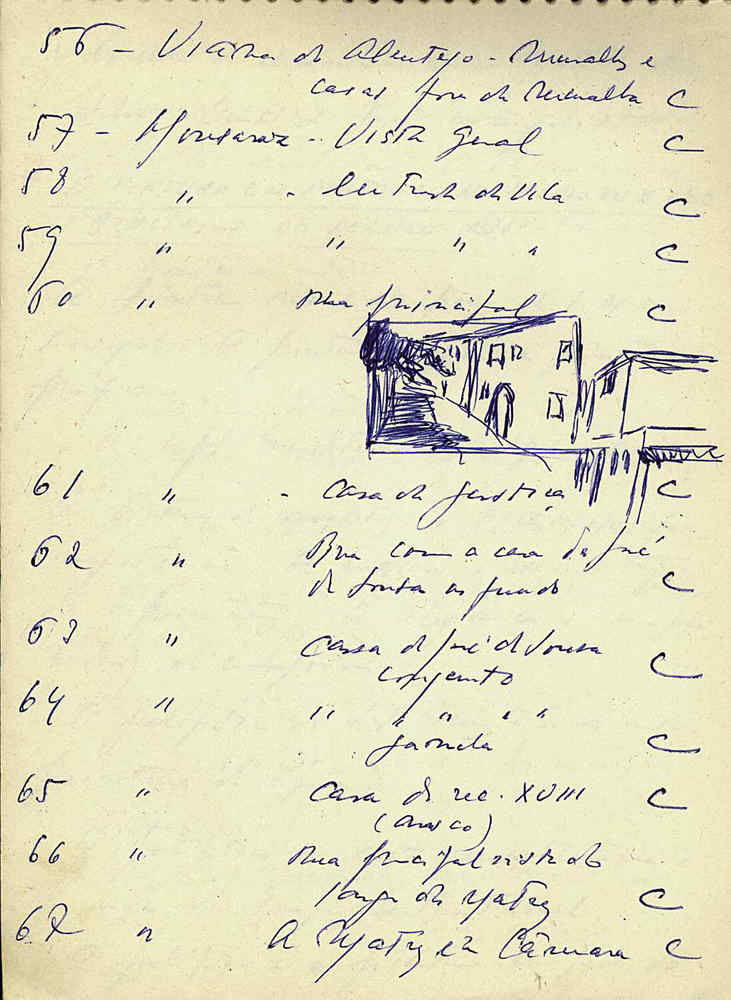 56 - Viana do Alentejo - Muralhas e
casas fora da Muralha C
57 - Monsaraz - Vista Geral C
58 " - da Vila C
59 " " " " C
60 " Rua principal C
61 " - Casa da Justiça C
62 " Rua com a casa de José
de Sousa ao fundo C
63 " Cassa de José de Sousa
conjunto C
64 " " " " " "
janela C
65 " Casa do sec. XVIII C
66 " Rua principal vista do
largo da Matriz C
67 " A Matriz e a Câmara C